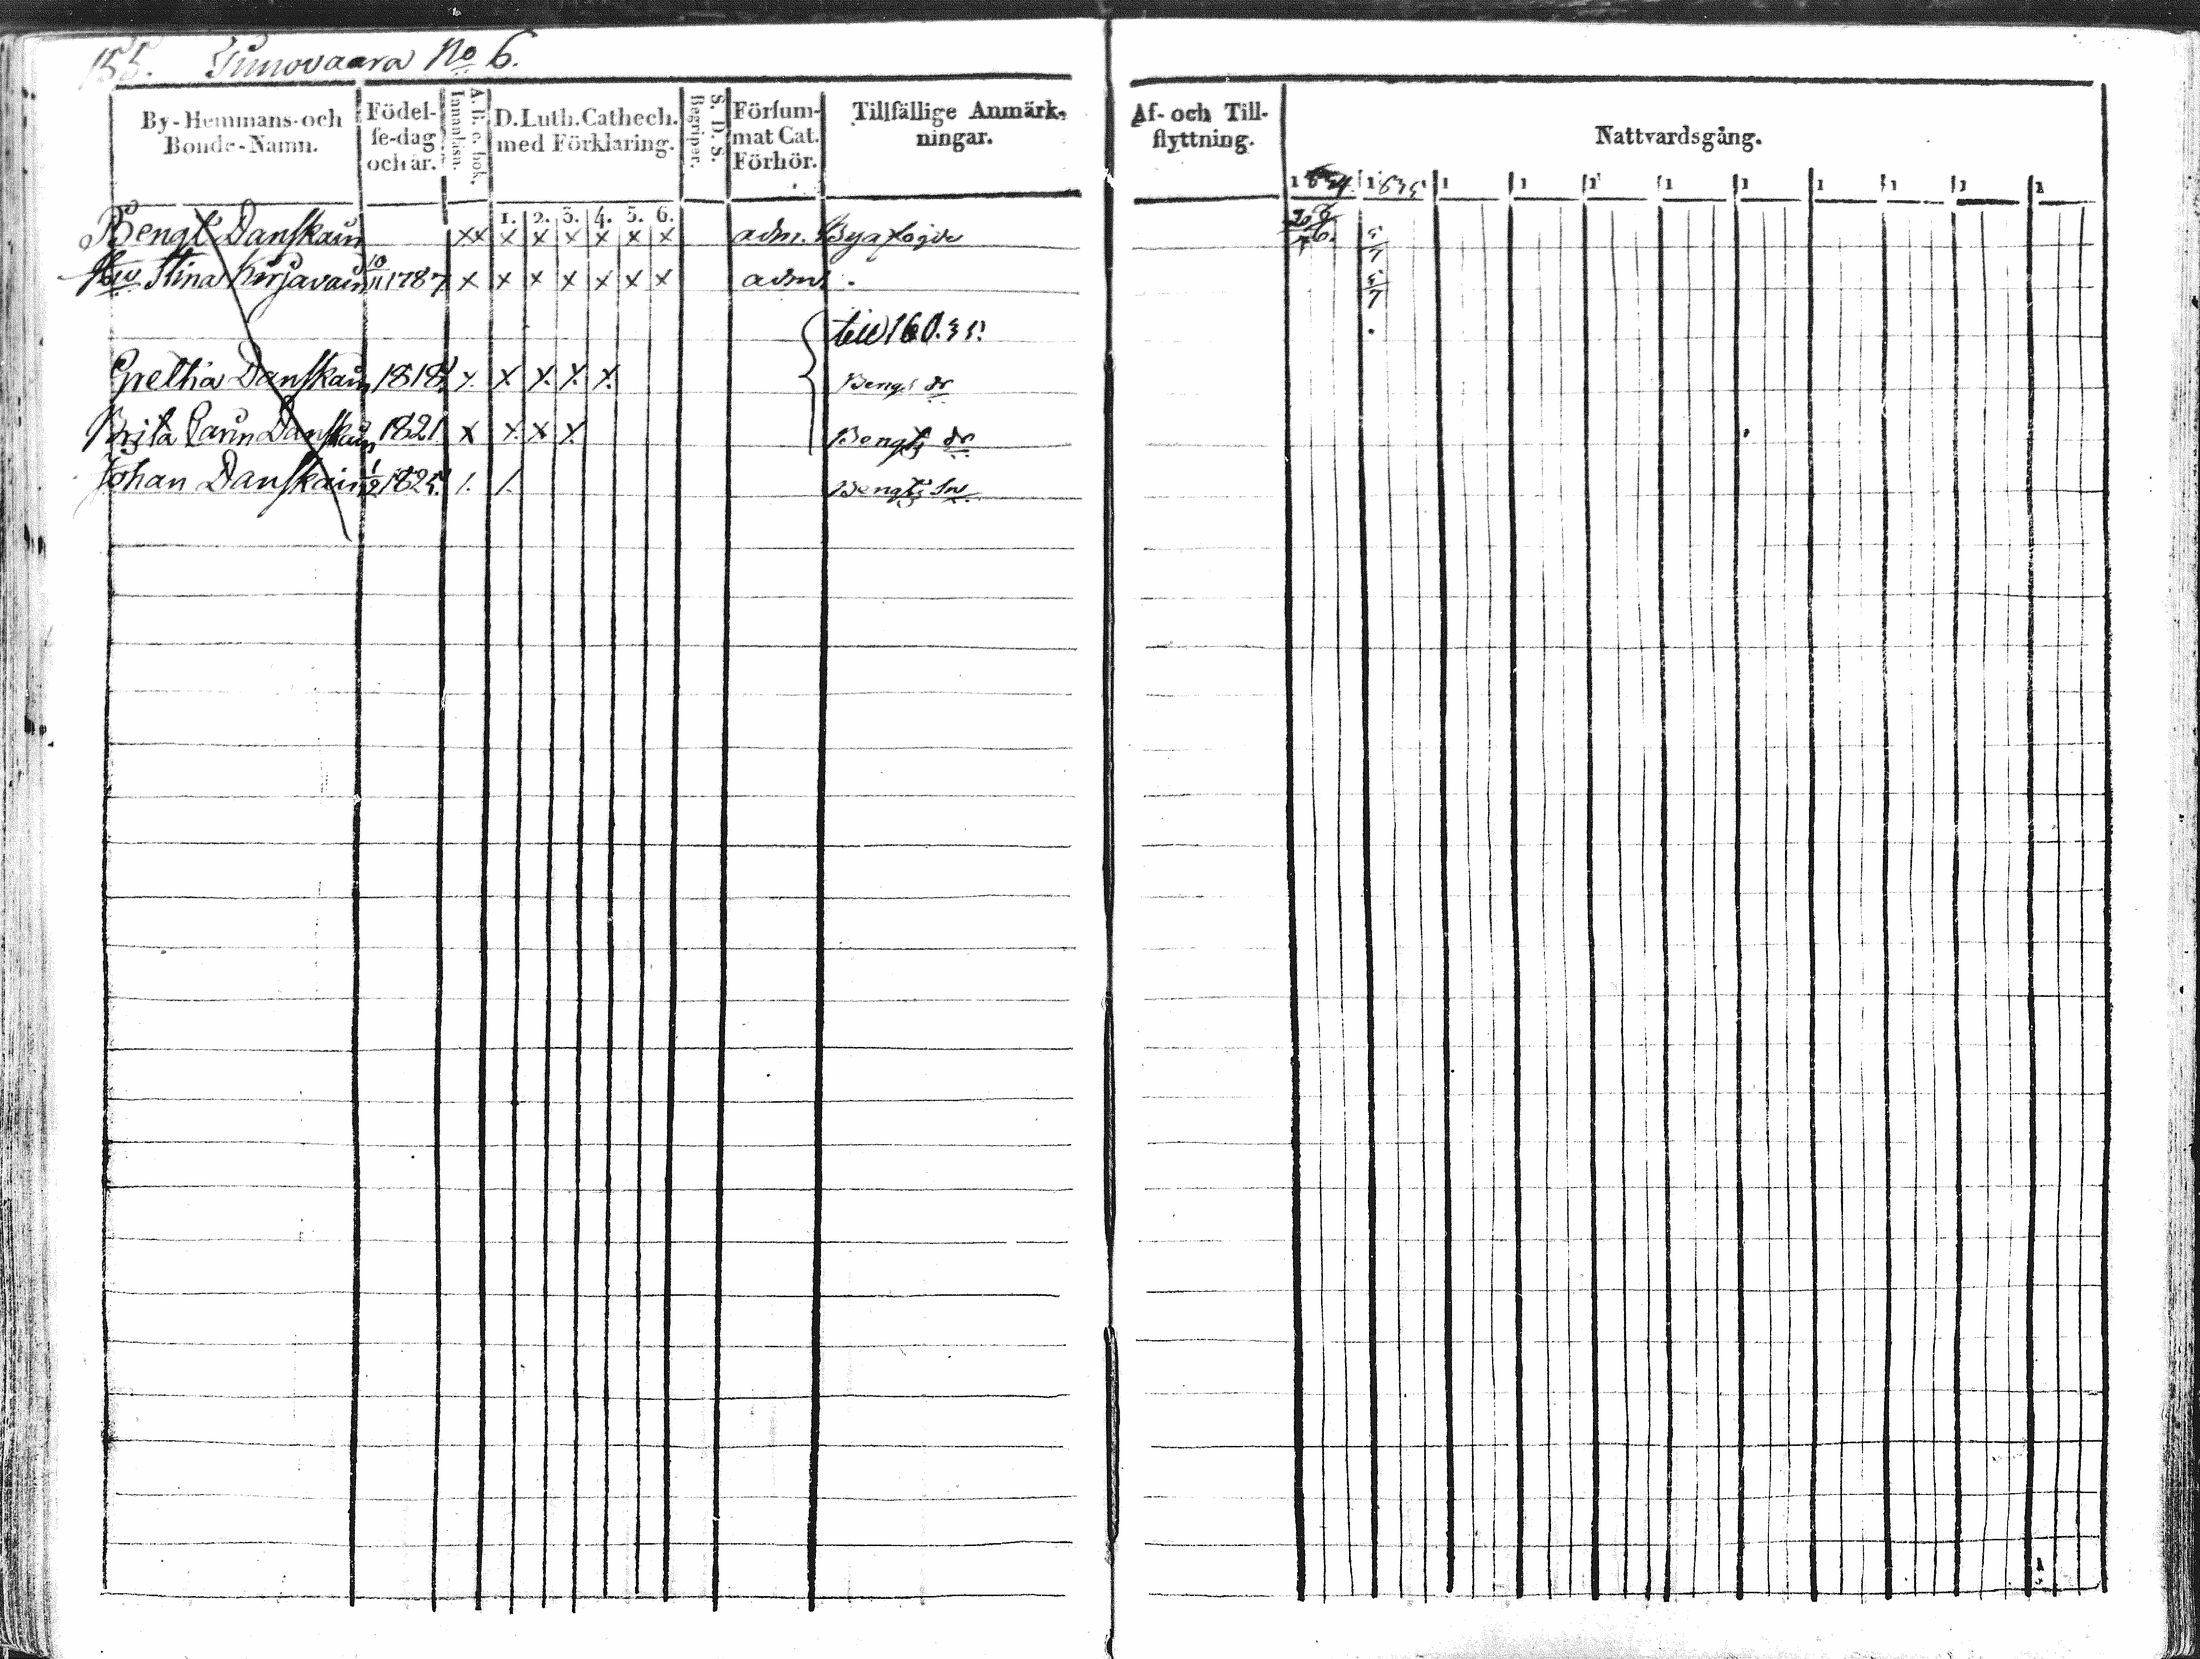 155. Timovaara No 6.
By-Hemmans-och Bonde-Namn.
Födel-se-dag och år.
A.B. c. bok. Innanläsn.
D. Luth. Cathech. med Förklaring.
S. D. S. Begriper.
Försum-mat Cat. Förhör.
Tillfällige Anmärk-ningar.
Af- och Till-flyttning.
Nattvardsgång.
1834 1835 1 1 1 1 1 1 1 1 1
1. 2. 3. 4. 5. 6.
Bengt Danskain xx x x x x x x adm. 5/7
Hu Stina Kirjavain 10/11 1787 x x x x x x x adm. 5/7
till 160. 35.
Gretha Danskain 1818 x. x x. x. x. Bengts dr
Brita Carin Danskain 1821 x x. x x. Bengts dr
Johan Danskain 1/2 1825. /. /. Bengts Sn